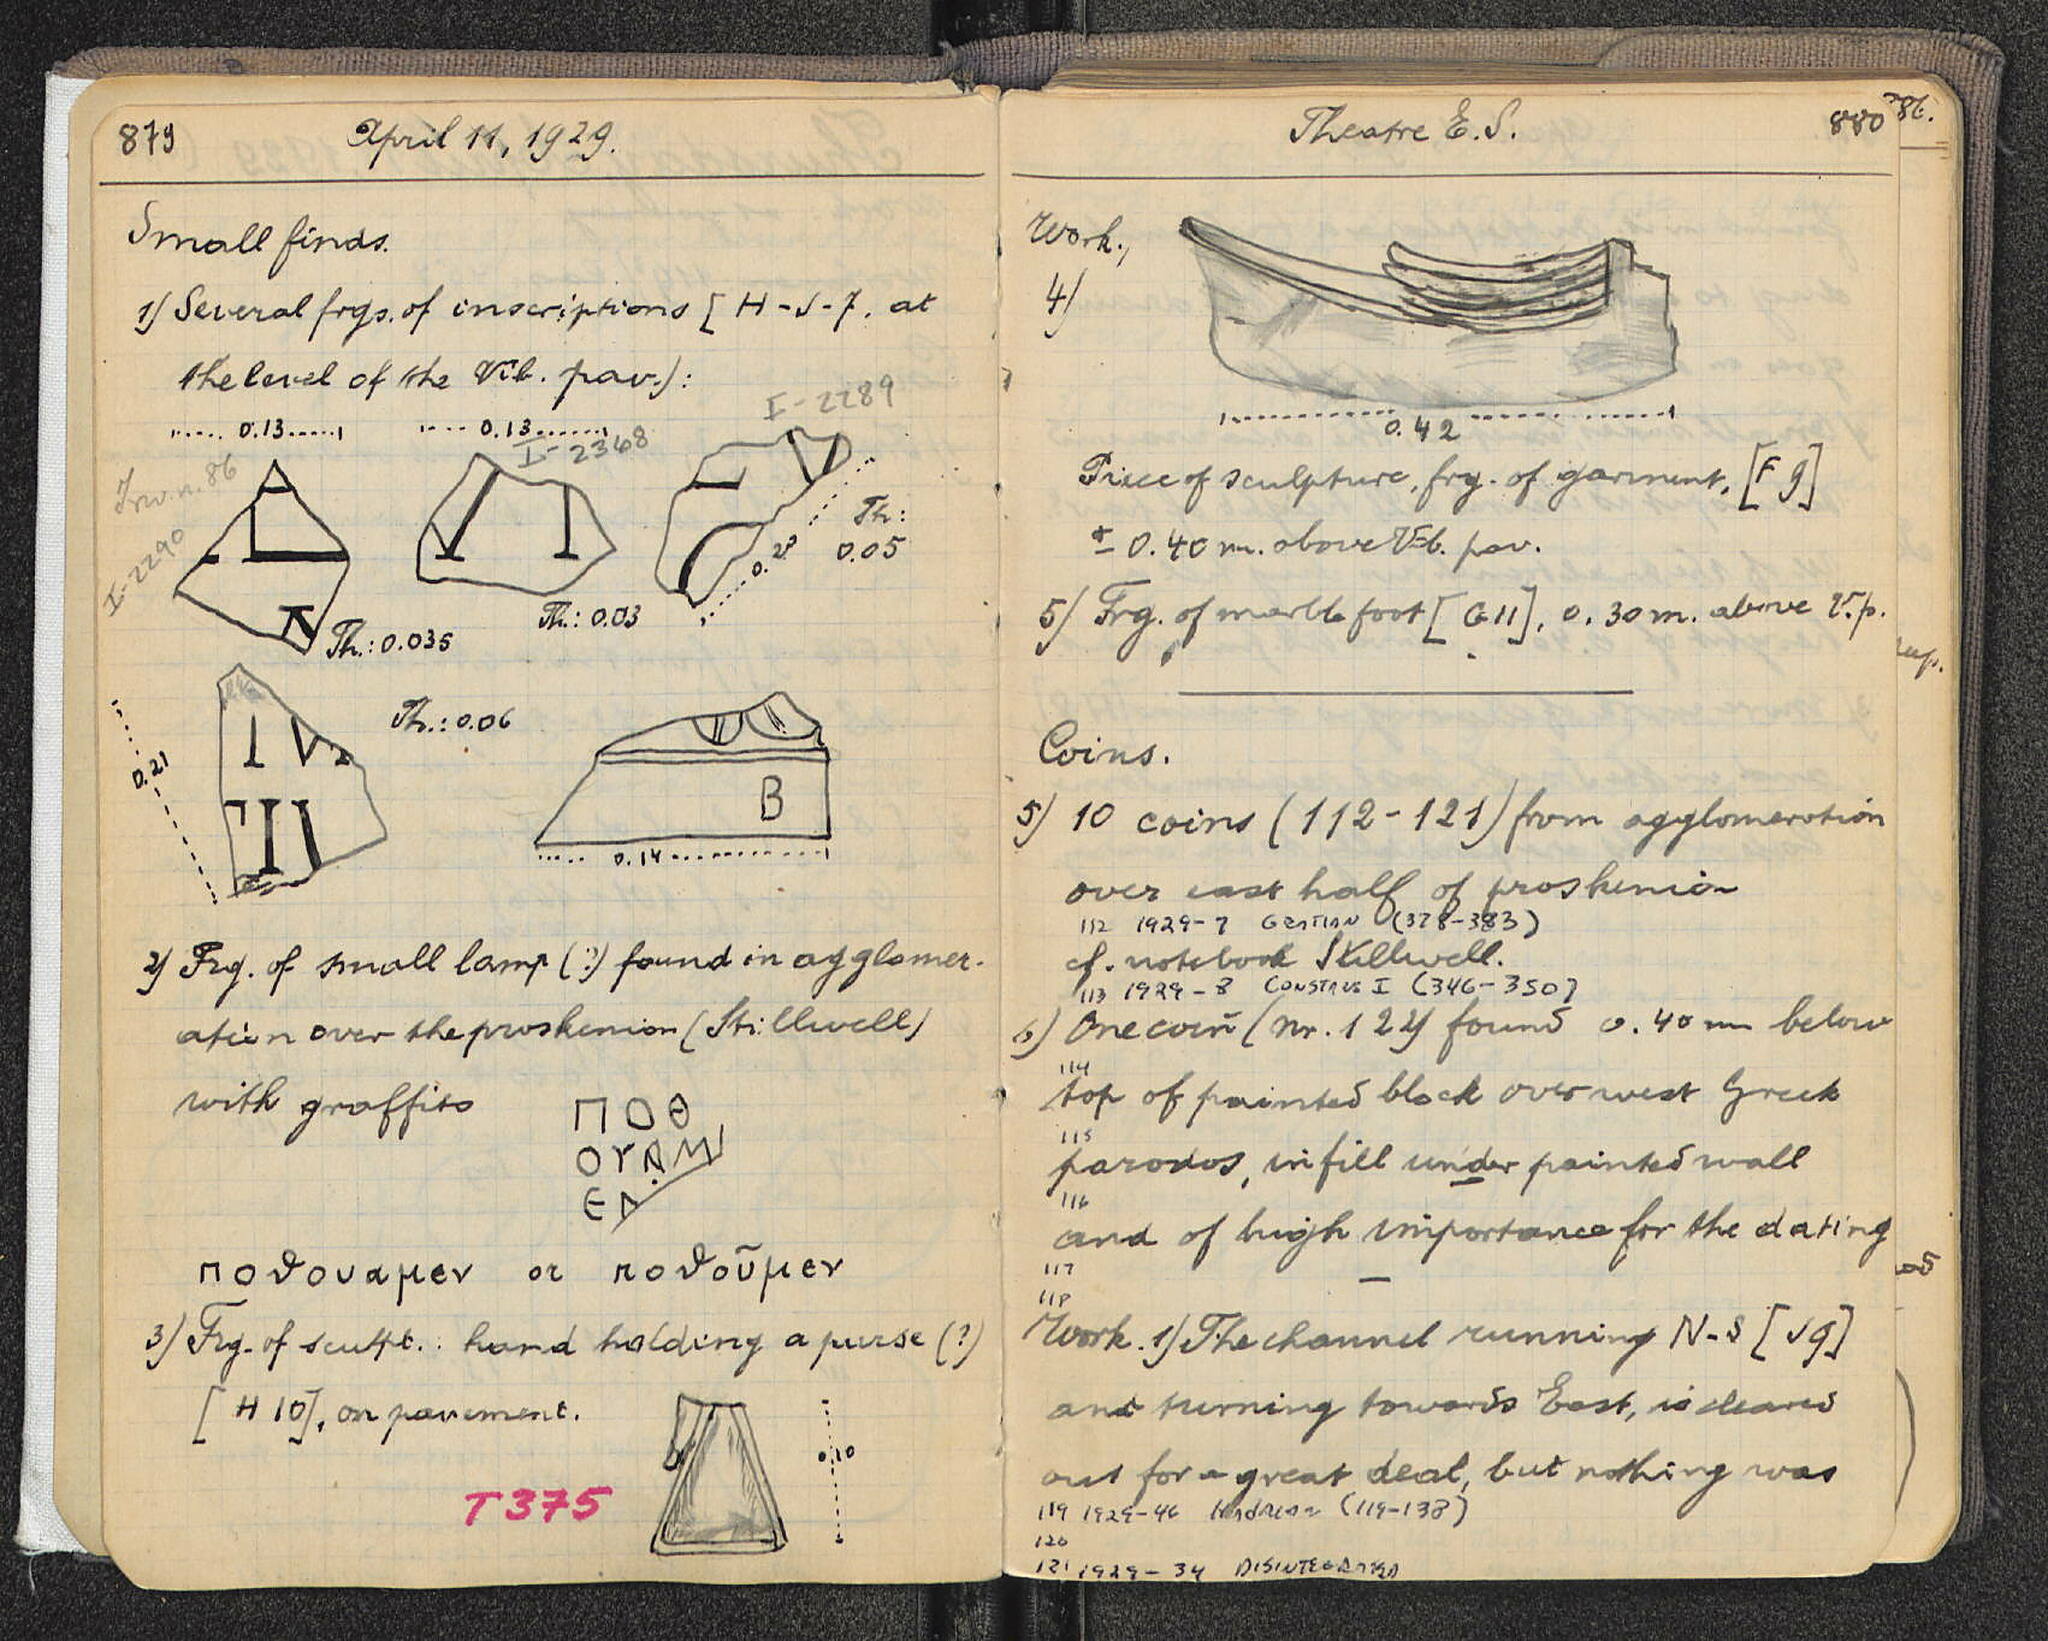 879 April 11, 1929.
Small finds.
1) Several frgs. of inscriptions [H-J-7, at
the level of the Vib. pav.):
0.13 0.13 I-2289
I-2368
Inv. n. 86
I-2290
Th: 0.05
0.2
Th.: 0.035 Th.: 0.03
0.21 Th.: 0.06
B
0.14
2) Frg. of small lamp (?) found in agglomer-
ation over the proskenion (Stillwell)
with graffito ΠΟΘ
ΟΥΑΜ
ΕΛ
ποθουαμεν or ποθοῦμεν
3) Frg. of sculpt.: hand holding a purse (?)
[H 10], on pavement.
0.10
T 375
Theatre E.S. 880
Work.
4)
0.42
Piece of sculpture, frg. of garment, [F 9]
± 0.40 m. above Vib. pav.
5) Frg. of marble foot [G 11], 0.30 m. above V.p.
Coins.
5) 10 coins (112-121) from agglomeration
over east half of proskenion
112 1929-7 GRATIAN (378-383)
cf. notebook Stillwell.
113 1929-8 CONSTANS I (346-350)
6) One coin (nr. 122) found 0.40 m below
114
top of painted block over west Greek
115
parodos, in fill under painted wall
116
and of high importance for the dating
117
118
Work. 1) The channel running N-S [J 9]
and turning towards East, is cleared
out for a great deal, but nothing was
119 1929-46 Hadrian (119-138)
120
121 1929-34 DISINTEGRATED